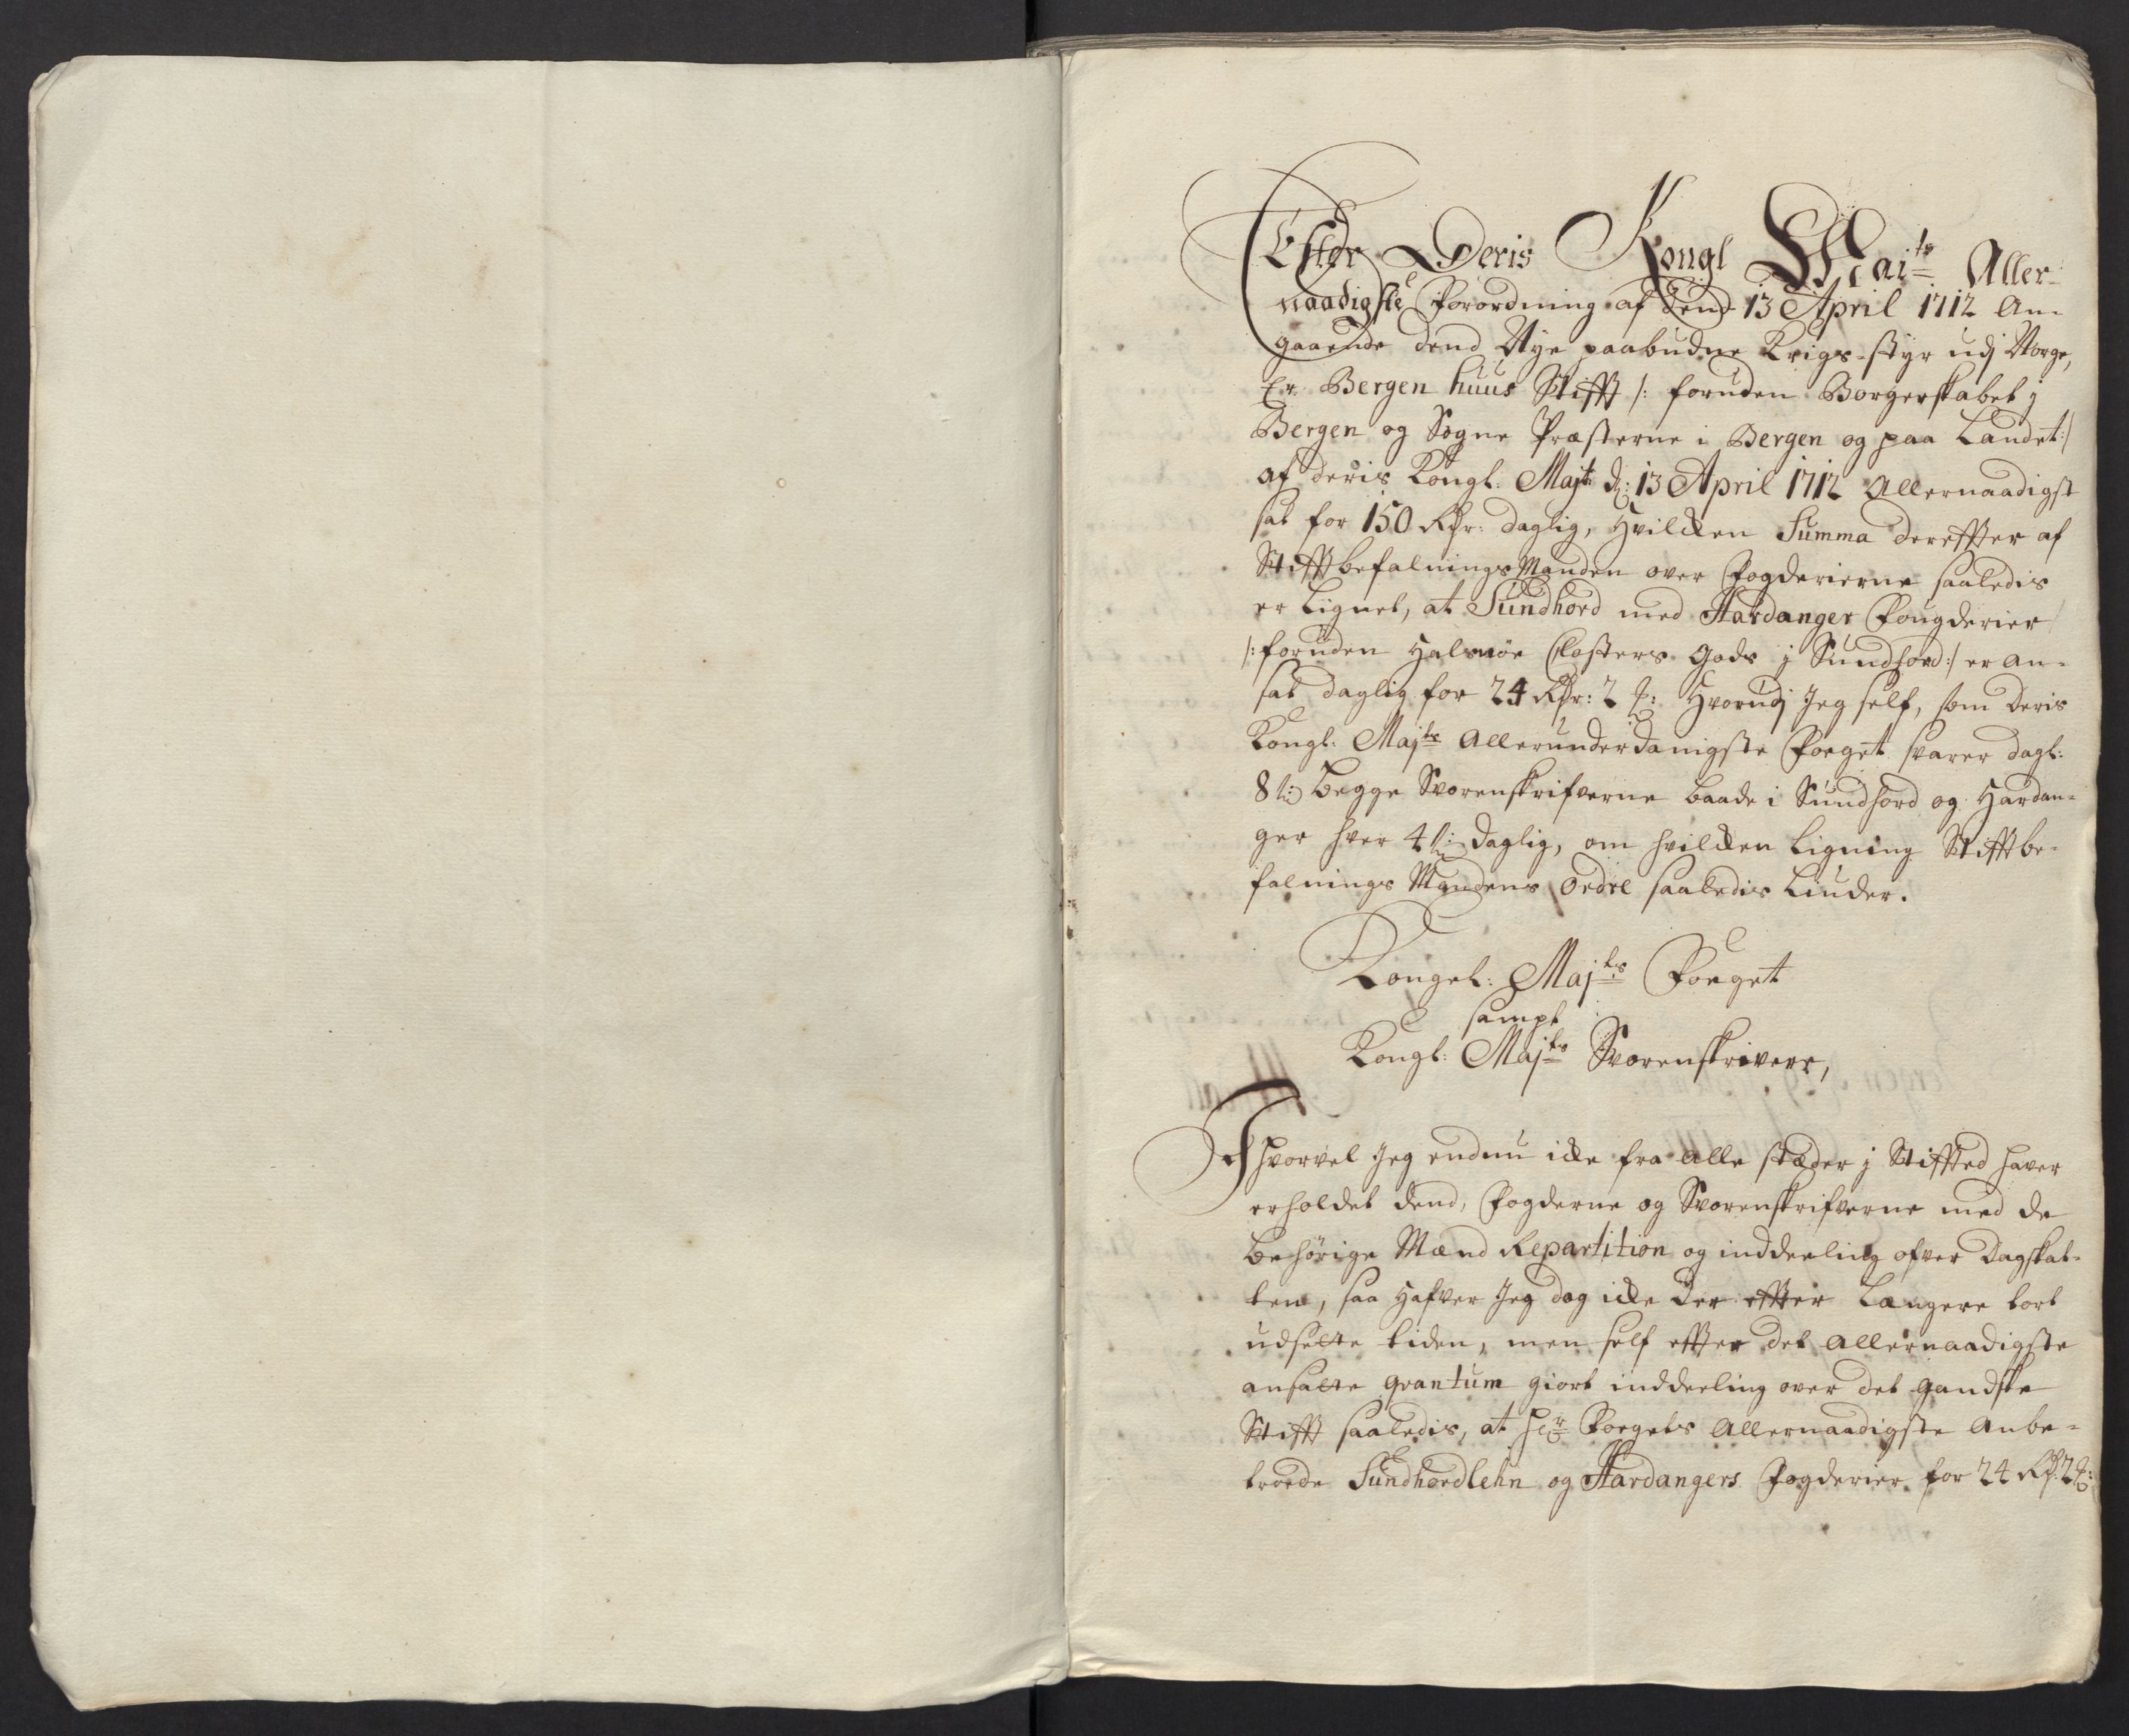 Efter Deris Kongl Maits Aller-
naadigste Forordning af dend 13 April 1712 an-
gaaende dend Nye paabudne Krigs-styr udj Norge,
Er Bergen huus Stifft /: foruden Borgerskabet j
Bergen og Sogne Præsterne i Bergen og paa Landet :/
af deris Kongl. Majt d: 13 April 1712 Allernaadigst
sat for 150 Rdr: daglig, hvilken Summa dereffter af
StifftbefalningsManden over Fogderierne saaledis
er Lignet, at Sundhord med Hardanger Fougderier
/: foruden Halsnöe Closters Gods j Sundhord :/ er an-
sat daglig for 24 Rdr: 2 ß: Hvorudj Jeg self, som Deris
Kongl. Majts Allerunderdanigste Foeget svarer dagl:
8 ß: begge Svorenskrifverne baade i Sundhord og Hardan-
ger hver 4 ß: Daglig, om hvilken Ligning Stifftbe-
falnings Mandens Ordre saaledis Liuder.
Kongel: Majts Foeget
sampt
Kongl: Majts Svorenskrivere,
Ihvorvel Jeg endnu icke fra alle stæder j Stiffted haver
erholdet dend, Fogderne og Svorenskrifverne med de
behörige Mænd Repartition og inddeeling ofver Dagskat-
ten, saa hafver Jeg dog icke der effter Længere tort
udsette tiden, men self effter det allernaadigste
ansatte qvantum giort inddeeling over det gandske
Stifft saaledis, at Hr Foegets Allernaadigste Anbe-
troede Sundhordlehn og Hardangers Fogderier for 24 Rd: 2 ß: